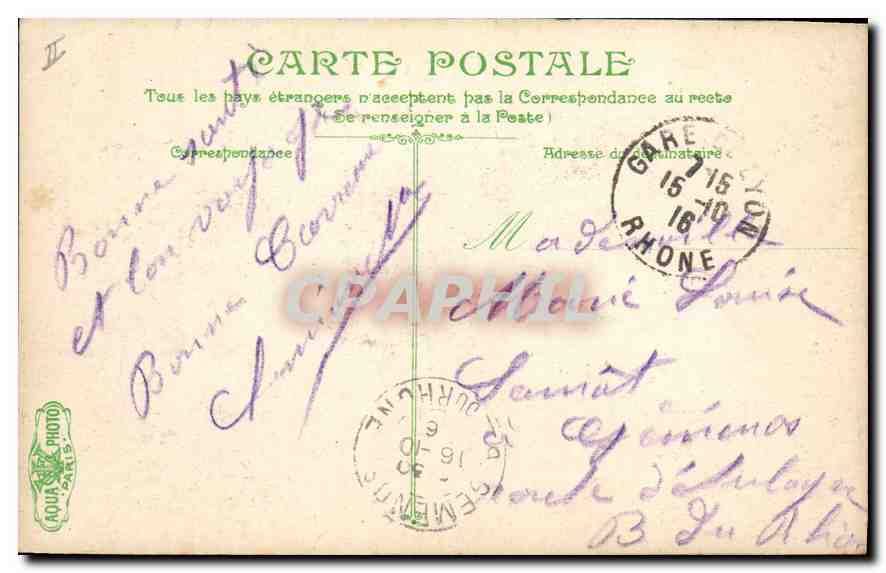 II
CARTE POSTALE
Tous les pays étrangers n'acceptent pas la Correspondance au recto
(Se renseigner à la Poste)
Correspondance
Adresse du destinataire
Bonne santé
et bon voyage
Bonne
Mademoiselle
Marie Louise
Gémenos
route d'Aubagne
B. du Rhône
GARE LYON
7 15
15 -10
16
RHONE
GEMENOS
16-10
DU RHONE
AQUA PHOTO
PARIS
CPAPHIL